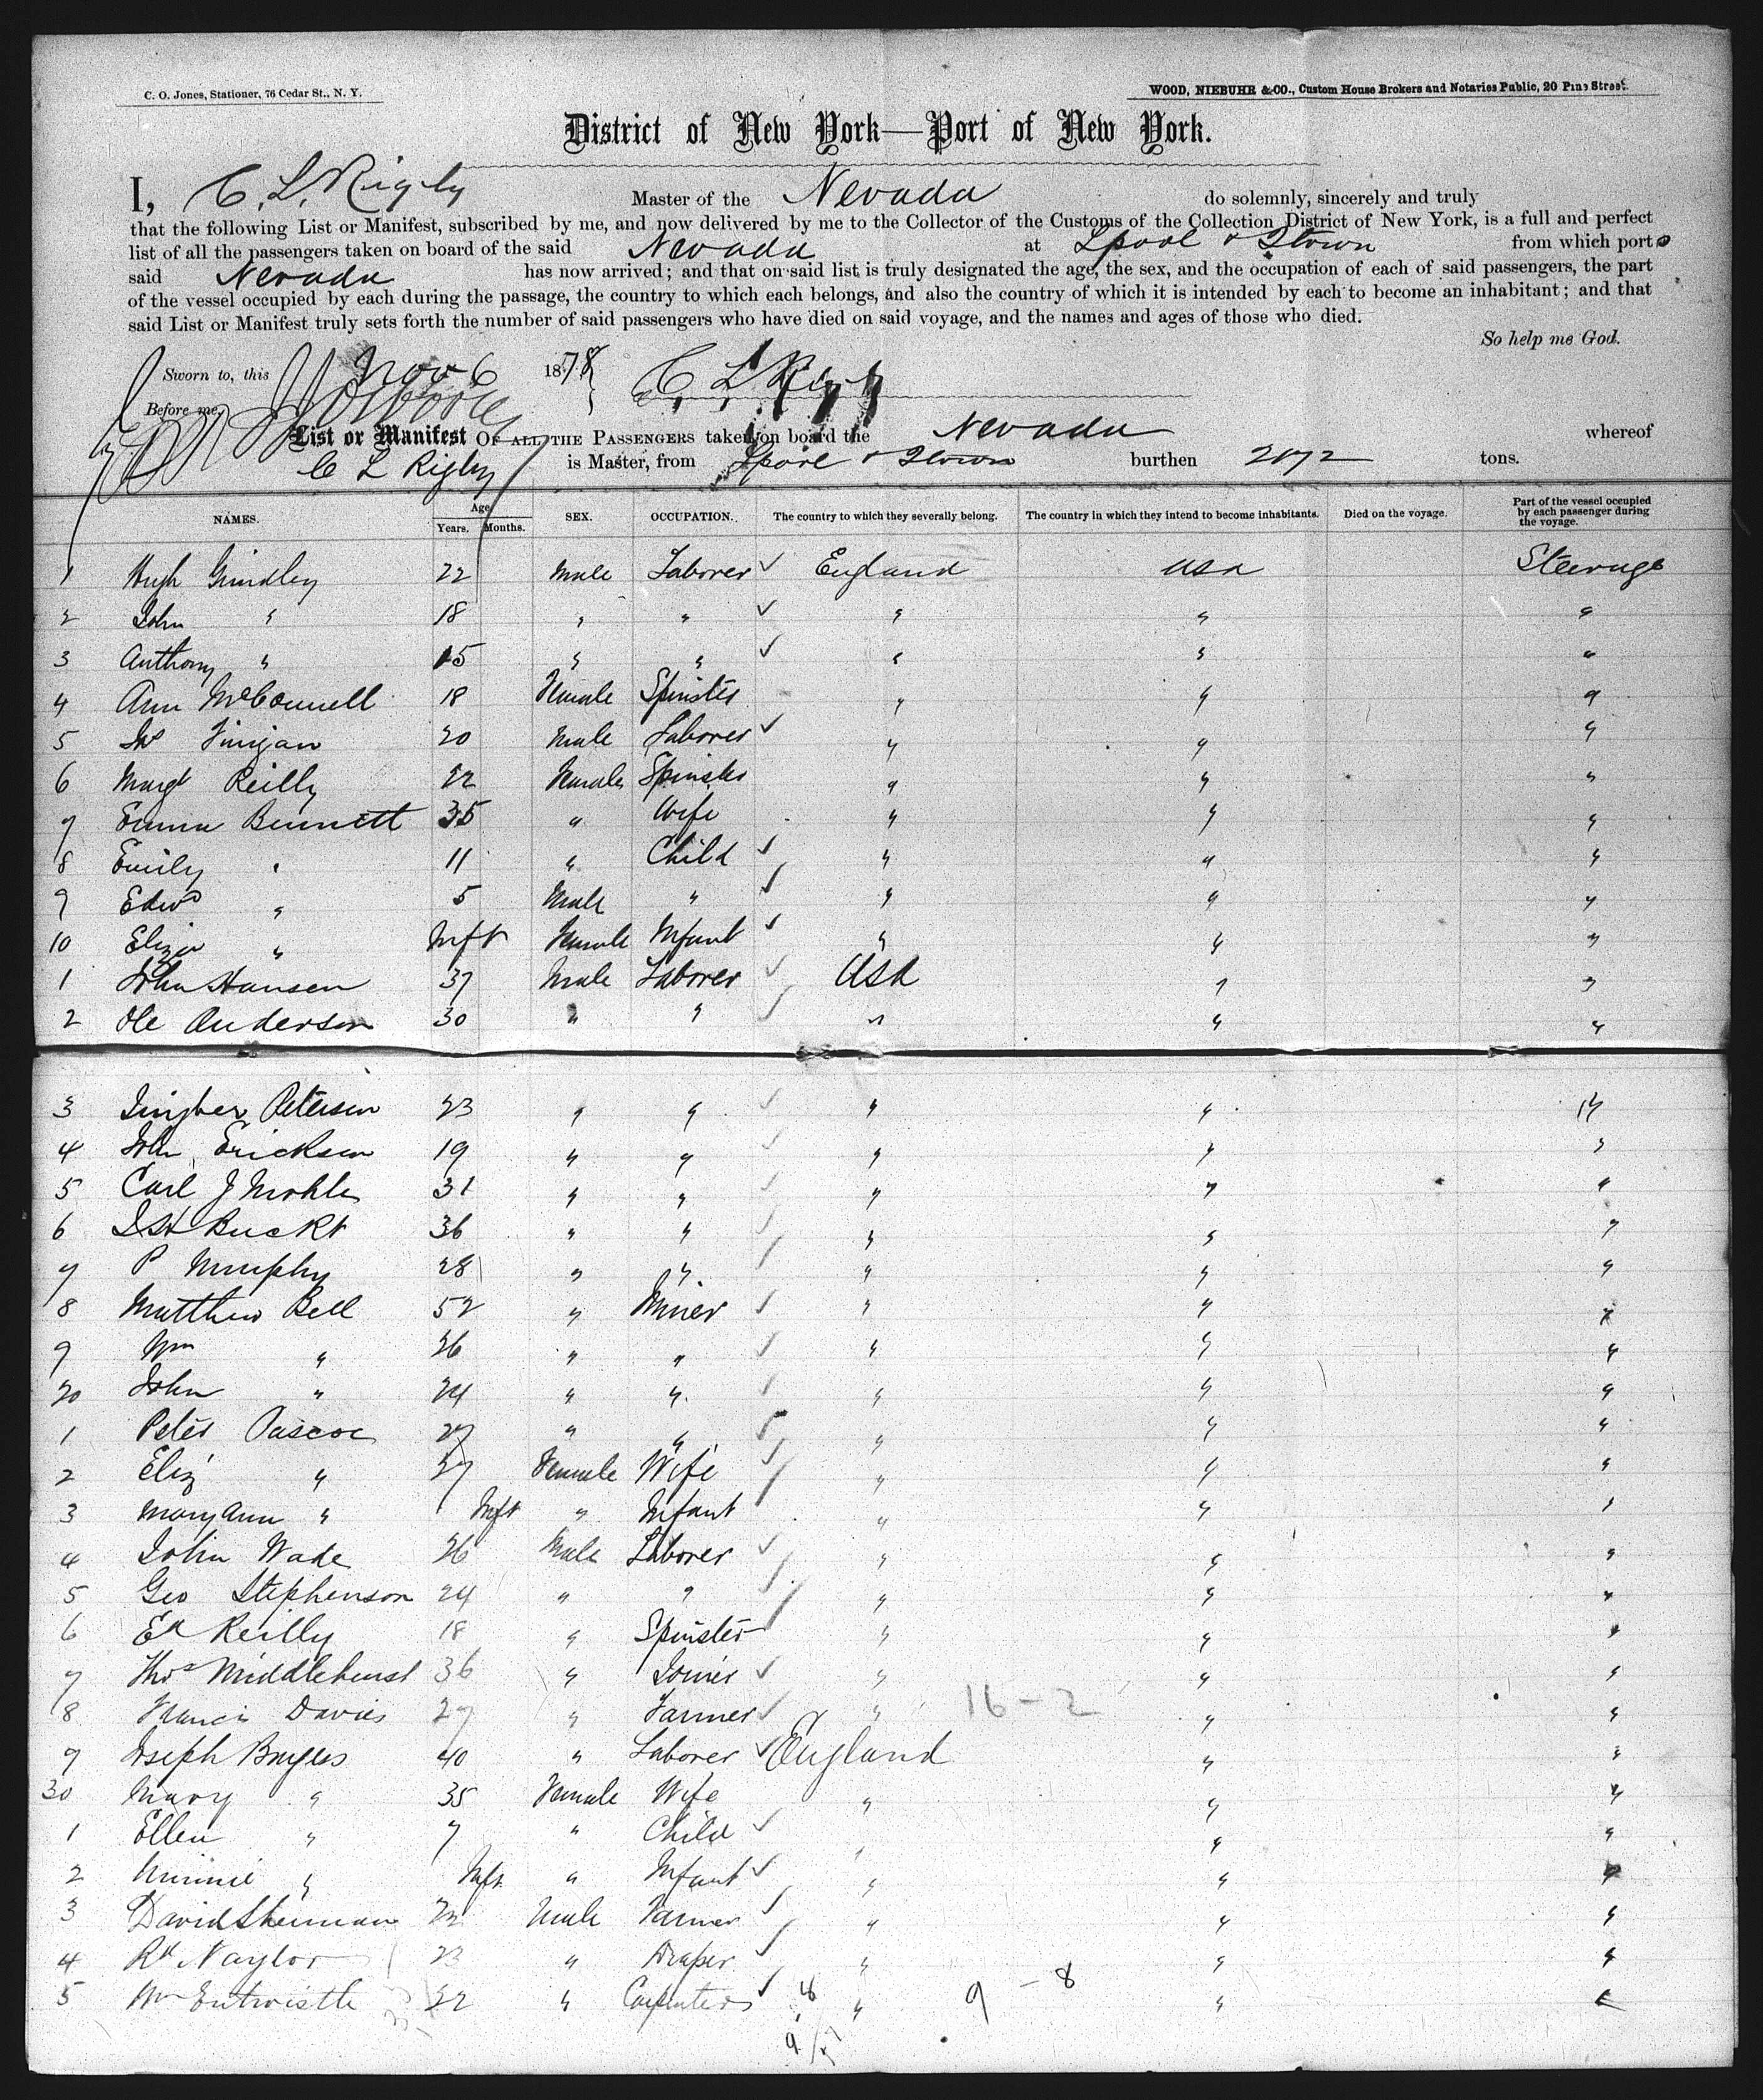 C. O. Jones, Stationer, 76 Cedar St., N. Y.
WOOD, NIEBUHR & CO., Custom House Brokers and Notaries Public, 20 Pine Street.
District of New York—Port of New York.
I, C. L. Rigby Master of the Nevada do solemnly, sincerely and truly
that the following List or Manifest, subscribed by me, and now delivered by me to the Collector of the Customs of the Collection District of New York, is a full and perfect
list of all the passengers taken on board of the said Nevada at Lpool & Qtown from which ports
said Nevada has now arrived; and that on said list is truly designated the age, the sex, and the occupation of each of said passengers, the part
of the vessel occupied by each during the passage, the country to which each belongs, and also the country of which it is intended by each to become an inhabitant; and that
said List or Manifest truly sets forth the number of said passengers who have died on said voyage, and the names and ages of those who died.
So help me God.
Sworn to, this Nov 6 1878 C. L. Rigby
Before me,
List or Manifest OF ALL THE PASSENGERS taken on board the Nevada whereof
C L Rigby is Master, from Lpool & Qtown burthen 2072 tons.
NAMES. Age Years. Months. SEX. OCCUPATION. The country to which they severally belong. The country in which they intend to become inhabitants. Died on the voyage. Part of the vessel occupied by each passenger during the voyage.
1 Hugh Grindley 22 Male Laborer England USA Steerage
2 John " 18 " " " " "
3 Anthony " 15 " " " " "
4 Ann McConnell 18 Female Spinster " " "
5 Jno Finigan 20 Male Laborer " " "
6 Margt Reilly 22 Female Spinster " " "
7 Emma Bennett 35 " Wife " " "
8 Emily " 11 " Child " " "
9 Edwd " 5 Male " " " "
10 Eliza " Inft Female Infant " " "
1 John Hansen 37 Male Laborer USA " "
2 Ole Anderson 30 " " " " "
3 Petersen 23 " " " " "
4 John Erickson 19 " " " " "
5 Carl J 31 " " " " "
6 36 " " " " "
7 P Murphy 28 " " " " "
8 Matthew Bell 52 " Miner " " "
9 Wm " 26 " " " " "
20 John " 24 " " " " "
1 Peter Pascoe 27 " " " " "
2 Eliz " 27 Female Wife " " "
3 Mary Ann " Inft " Infant " " "
4 John Wade 26 Male Laborer " " "
5 Geo Stephenson 24 " " " " "
6 Reilly 18 " Spinster " " "
7 Thos Middlehurst 36 " Joiner " " "
8 Francis Davies 27 " Farmer " 16-2 " "
9 Joseph 40 " Laborer England " "
30 Mary " 35 Female Wife " " "
1 Ellen " 7 " Child " "
2 Minnie " Inft " Infant " " "
3 David Male Farmer " " "
4 Rd Naylor 23 " Draper " " "
5 Wm Entwistle 22 " Carpenter " 9 - 8 " "